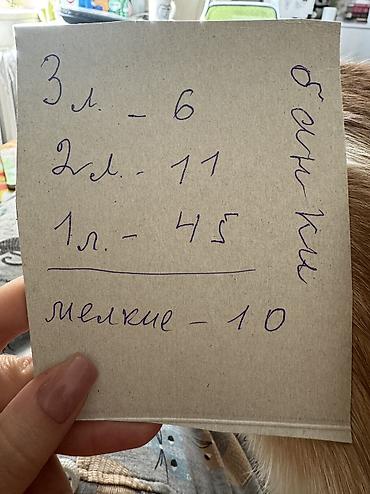 3 л. - 6
2 л. - 11
1 л. - 45
мелкие - 10
банки